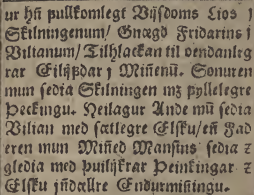 ur hñ pullkomlegt Vijsdoms Lios j
Skilningenum/ Gnægd Fridarins j
Viltanum/ Tilhlackan til oendanlig
rar Eilijfdar j Miñenū. Sonuren
mun sedia Skilningen mz fyllelegre
Þeckingu. Heilagur Ande mū sedia
Vilian med sætlegre Elsku/ eñ Fad
eren mun Miñed Mansins sedia ꝛ
gledia med þuilijkrar Þeinkingar ꝛ
Elsku jñdællre Endurmiñingu.